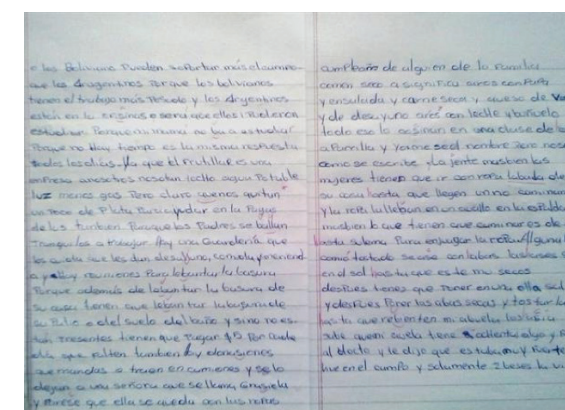 e los Bolivianos Pueden soportar más el campo
que los Argentinos Porque los bolivianos
tienen el trabajo más Pesado y los Argentinos
están en la
estudiar. Porque mi mamá no va a estudiar
Porque no hay tiempo es la misma respuesta
todos los días. Ya que el Frutillar es una
empresa anosotros nos dan todo agua Potable
luz menos gas Pero claro quenos quitan
un Poco de Plata Para ayudar en la Paga
de la tambien Porque los Padres se ballan
tranquilos a trabajar. Hay una Guarderia que
los cuida que les dan desayuno, comida y meriend
a y hay reuniones Para lebantar la basura
Porque además de lebantar la basura de
su casa tienen que lebantar la basura de
su Patio o del suelo del baño y sino no es
tan Presentes tienen que Pagar $5 Por cada
día que falten tambien hay donaciones
que mandas o traen en camiones y se lo
dejan a una señora que se llama Graciela
y Parese que ella se queda con las ropas
cumpleaño de alguien de la Familia
comen seco a significa arroz con Papa
y ensalada y carne seca y queso de Va
y de desayuno arroz con leche y
todo eso lo cosinan en una clase de
a Parrilla y yo no se el nombre
como se escribe y la jente tambien las
mujeres tienen que ir con ropa labada de
su casa hasta que llegen un rio caminan
y la ropa la lleban en un in la espalda
tambien lo que tienen que caminar es de
hasta subema Para enjuagar la ropa Alguna
como tostado se ase con labar las abas
en el sol hasta que este mu secas
despues tenes que Poner en una olla
y despues Poner las abas secas y tostar
has ta que rebenten mi abuela
sabe que mi avuela tiene
al doctor y le dijo que es tuba muy
bive en el campo y solamente 2 beses la vi